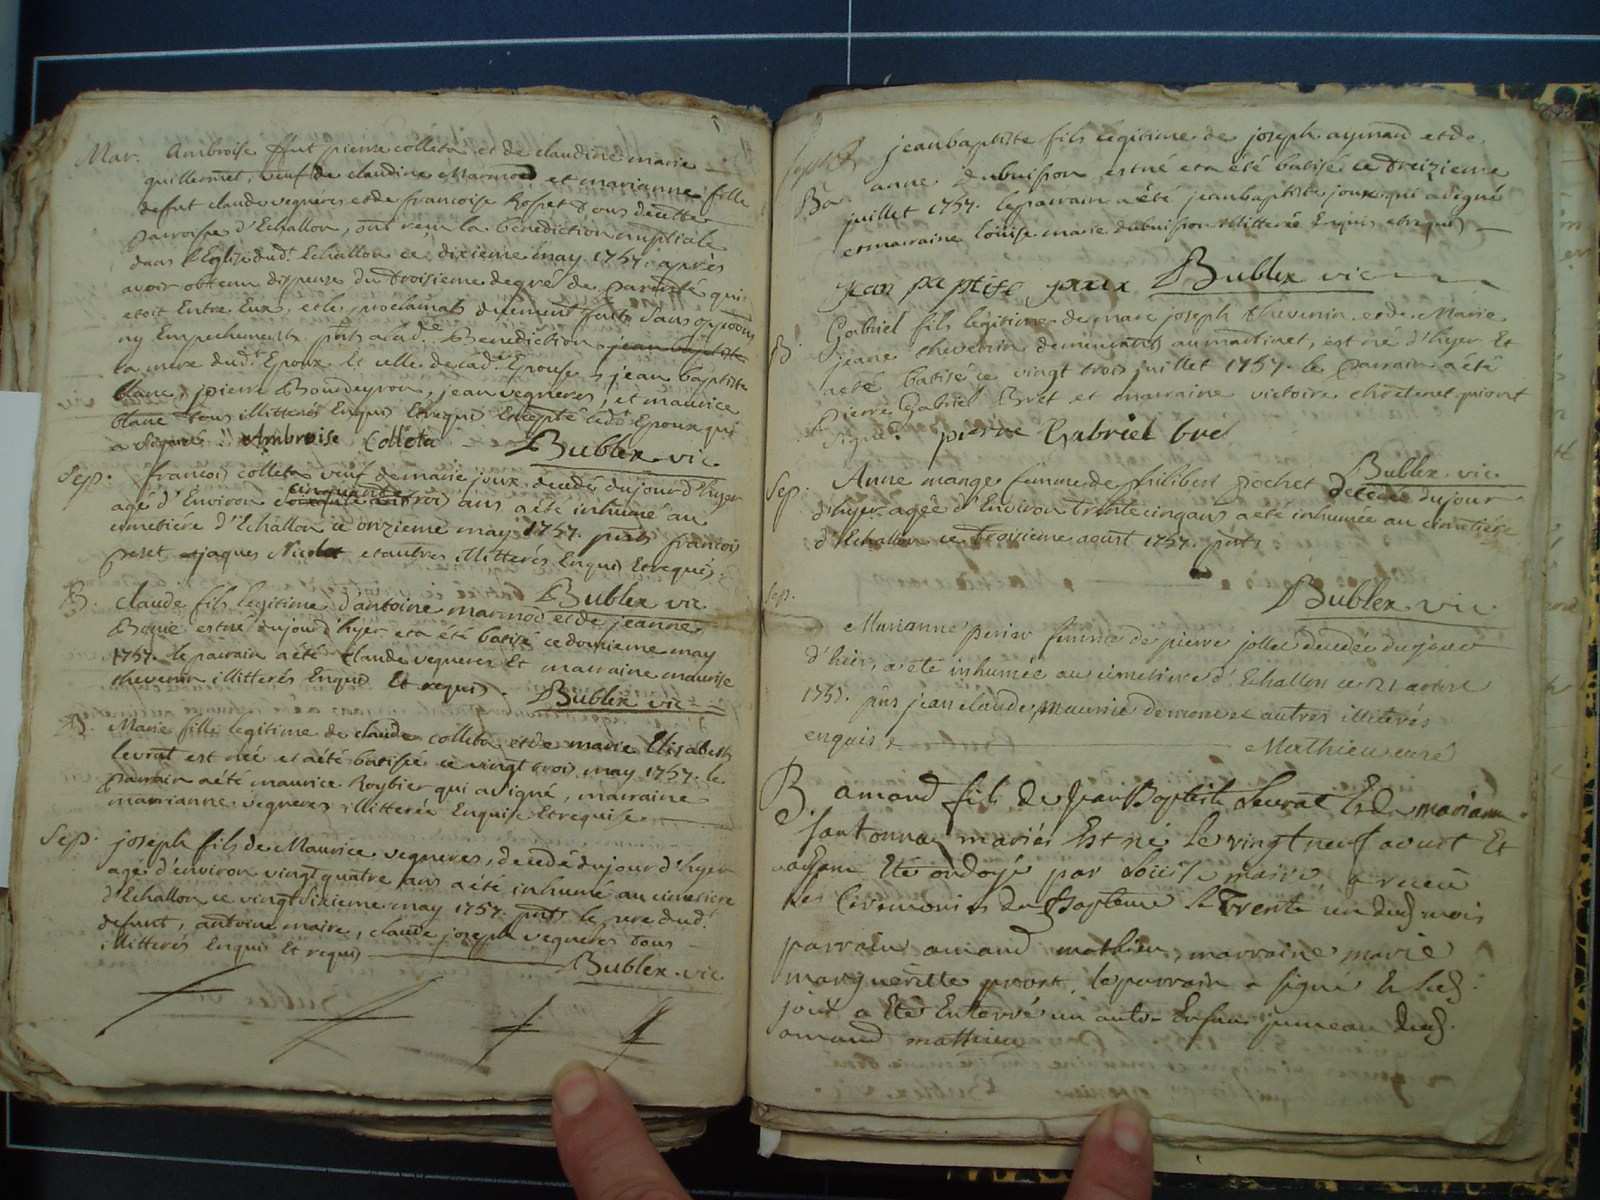 Mar. Ambroise ffeut pierre colleta et de claudine marie
guillermet, veuf de claudine Marmod et marianne fille
defeut claude vegneres et de francoise Rosset tous decette
parroisse d'Echallon, ont reçu la bénédiction nuptiale
dans l'Eglise dudt Echallon ce dixieme may 1757. après
avoir obtenu dispense du troisieme degré de parenté qui
etoit Entre Eux, et les proclamats duement faits sans opposition
ny Empechement, pnts a lad.te Benediction jean baptiste
la mere dudt Epoux et celle de lad.e Epouse, jean baptiste
blanc, pierre Bourdeyron, jean vegneres, et maurice
blanc tous illitterés Enquis Etrequis Excepté led. Epoux qui
a signé. Ambroise Colleta Bublex vic
Sep. francois colleta veuf de marie joux decedé dujourd'hyer
agé d'Environ cinquante trois ans a été inhumé au
cimetiere d'Echallon ce onzieme may 1757. pnts francois
poset et jaques Nicolet et autres illitterés Enquis Etrequis.
Bublex vic
B. Claude fils legitime d'antoine marmod et de jeanne
Bonne est né dujourd'hyer et a été batisé ce douzieme may
1757. le parrain a été Claude vegneres Et marraine maurise
thevenin illitterés Enquis Et requis. Bublex vic
B. Marie fille legitime de claude colleta et de marie Elisabeth
levrat est née et a été batisée ce vingt trois may 1757. le
parrain a été maurice Roybier qui a signé, marraine
marianne vegneres illitterée Enquise Etrequise
Sep. joseph fils de Maurice vegneres, decedé dujourd'hyer
agé d'environ vingt quatre ans a été inhumé au cimetiere
d'Echallon ce vingt sixieme may 1757. pnts le pere dudt
defunt, antoine maire, claude joseph vegneres tous
illitterés Enquis Et requis Bublex vic
jean baptiste fils légitime de joseph aymard et de
Ba. anne dubuisson est né et a été batisé ce treizieme
juillet 1757. le parrain a été jean baptiste joux qui a signé
et marraine louise marie dubuisson illitterée Enquis etrequis
jean baptiste joux Bublex vic
B. Gabriel fils légitime de marc joseph thevenin et de Marie
jeane thevenin demeurants au martinet, est né d'hyer Et
a été batisé ce vingt trois juillet 1757. le parrain a été
pierre Gabriel Bret et marraine victoire chretenet qui ont
signé. pierre Gabriel bret
Bublex vic
Sep. Anne mange femme de philibert pochet decedée dujour
d'hyer agée d'Environ trente cinq ans a été inhumée au cimetiere
d'Echallon ce troisieme aoust 1757. pnts
Bublex vic
Sep.
Marianne perier femme de pierre jollet decedée dujour
d'hier, a été inhumée au cimetiere d'Echallon ce 21
1757. pnts jean claude, maurice et autres illiterés
enquis. Mathieu curé
B. amand fils de Jean Baptiste Levrat Et de mariane
santonnax mariés Est né le vingt neuf aoust Et
ayant été ondoyé par Loüise maire, a receu
les Ceremonies du Baptême le Trente un dud mois
parrain amand mathieu, marraine marie
marguéritte proost, le parrain a signé le sud.
jour a été Enterré un autre Enfant jumeau dud.
amand mathieu